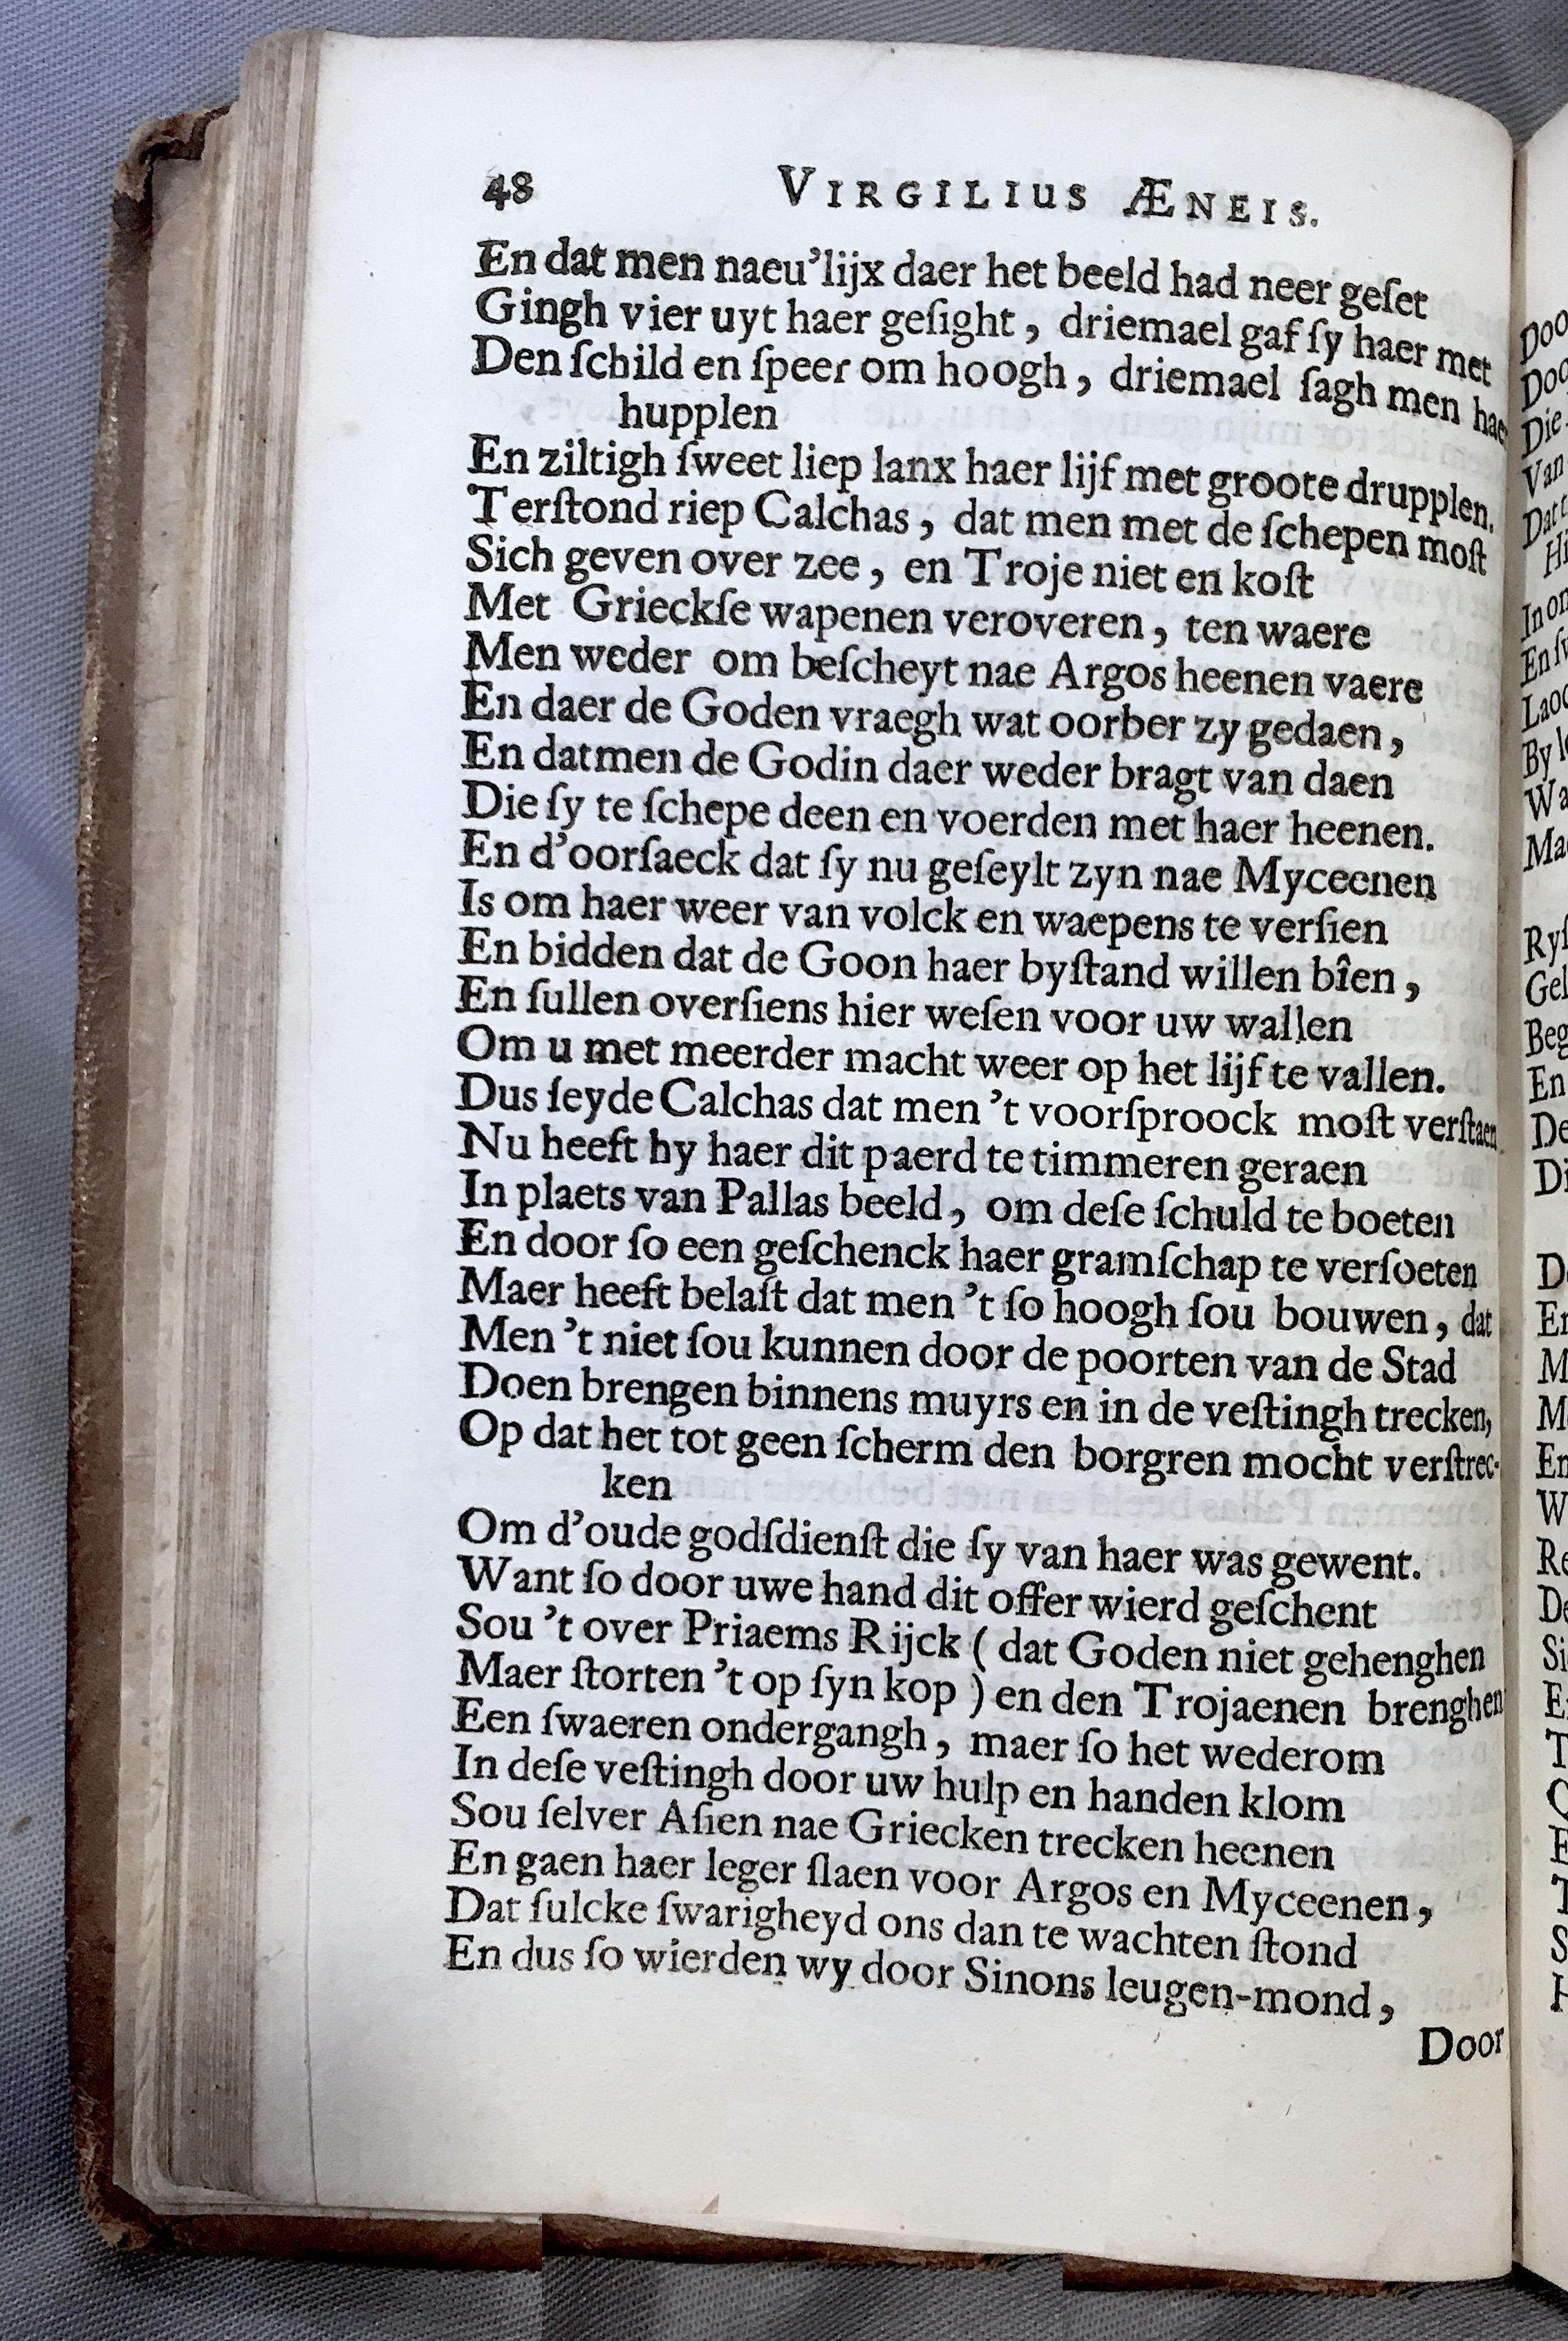 48 VIRGILIUS ÆNEIS.
En dat men naeu'lijx daer het beeld had neer geſet
Gingh vier uyt haer geſight, driemael gaf ſy haer met
Den ſchild en ſpeer om hoogh, driemael ſagh men haer
hupplen
En ziltigh ſweet liep lanx haer lijf met groote drupplen.
Terſtond riep Calchas, dat men met de ſchepen moſt
Sich geven over zee, en Troje niet en koſt
Met Grieckſe wapenen veroveren, ten waere
Men weder om beſcheyt nae Argos heenen vaere
En daer de Goden vraegh wat oorber zy gedaen,
En datmen de Godin daer weder bragt van daen
Die ſy te ſchepe deen en voerden met haer heenen.
En d'oorſaeck dat ſy nu geſeylt zyn nae Myceenen
Is om haer weer van volck en waepens te verſien
En bidden dat de Goon haer byſtand willen bîen,
En ſullen overſiens hier weſen voor uw wallen
Om u met meerder macht weer op het lijf te vallen.
Dus ſeyde Calchas dat men 't voorſproock moſt verſtaen
Nu heeft hy haer dit paerd te timmeren geraen
In plaets van Pallas beeld, om deſe ſchuld te boeten
En door ſo een geſchenck haer gramſchap te verſoeten
Maer heeft belaſt dat men 't ſo hoogh ſou bouwen, dat
Men 't niet ſou kunnen door de poorten van de Stad
Doen brengen binnens muyrs en in de veſtingh trecken,
Op dat het tot geen ſcherm den borgren mocht verſtrec-
ken
Om d'oude godſdienſt die ſy van haer was gewent.
Want ſo door uwe hand dit offer wierd geſchent
Sou 't over Priaems Rijck ( dat Goden niet gehenghen
Maer ſtorten 't op ſyn kop ) en den Trojaenen brenghen
Een ſwaeren ondergangh, maer ſo het wederom
In deſe veſtingh door uw hulp en handen klom
Sou ſelver Aſien nae Griecken trecken heenen
En gaen haer leger ſlaen voor Argos en Myceenen,
Dat ſulcke ſwarigheyd ons dan te wachten ſtond
En dus ſo wierden wy door Sinons leugen-mond,
Door